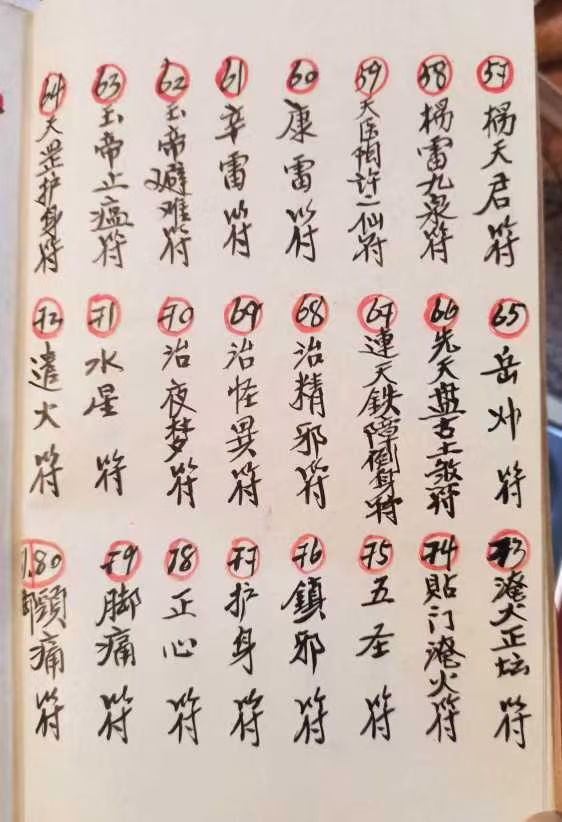 57 楊天君符
58 楊雷九泉符
59 天医陶許二仙符
60 康雷符
61 辛雷符
62 玉帝避难符
63 玉帝止瘟符
64 天罡护身符
65 岳帅符
66 先天盘古土煞符
67 連天鉄障倒身符
68 治精邪符
69 治怪異符
70 治夜梦符
71 水星符
72 遣火符
73 火正坛符
74 貼门火符
75 五圣符
76 鎮邪符
77 护身符
78 正心符
79 脚痛符
80 頭痛符